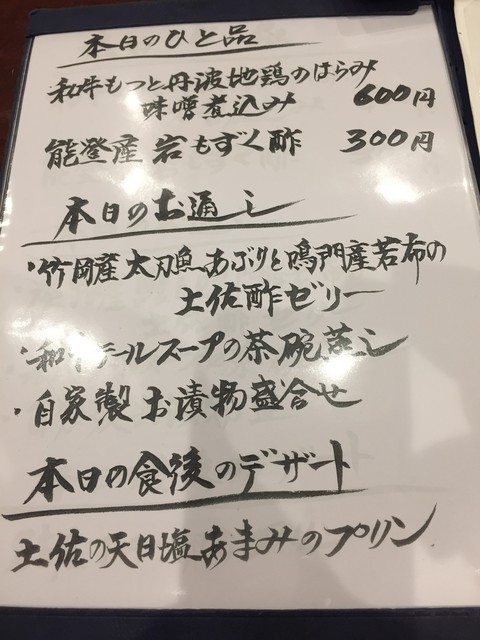 本日のひと品
和牛もつと丹波地鶏のはらみ
味噌煮込み 600円
能登産 岩もずく酢 300円
本日のお通し
・竹岡産太刀魚あぶりと鳴門産若布の
土佐酢ゼリー
・和牛テールスープの茶碗蒸し
・自家製お漬物盛合せ
本日の食後のデザート
土佐の天日塩あまみのプリン